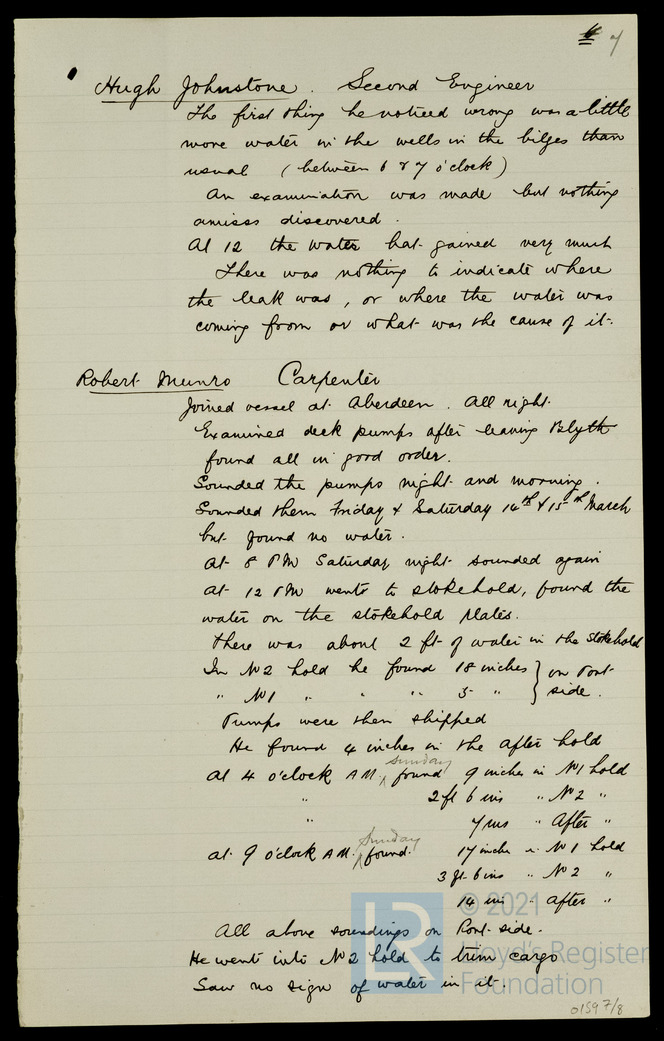 7
Hugh Johnstone. Second Engineer
The first thing he noticed wrong was a little
more water in the wells in the bilges than
usual (between 6 & 7 o'clock)
An examination was made but nothing
amiss discovered.
At 12 the water hat gained very much
There was nothing to indicate where
the leak was, or where the water was
coming from or what was the cause of it.
Robert Munro Carpenter
Joined vessel at Aberdeen. All right.
Examined deck pumps after leaving Blyth
found all in good order.
Sounded the pumps night and morning.
Sounded them Friday & Saturday 14th & 15th March
but found no water.
At 8 PM Saturday night sounded again
At 12 PM went to stokehold, found the
water on the stokehold plates.
There was about 2 ft of water in the stokehold
In No 2 hold he found 18 inches } on Port
" No 1 " " " 5 " } side.
Pumps were then shipped
He found 4 inches in the after hold
At 4 o'clock AM. ^ Sunday found 9 inches in No 1 hold
" 2 ft 6 ins " No 2 "
7 ins " After "
at 9 o'clock AM. ^ Sunday found. 17 inches in No 1 hold
3 ft 6 ins " No 2 "
14 ins " After "
All above soundings on Port side.
He went into No 2 hold to trim cargo
Saw no sign of water in it.
LR © 2021
Lloyd's Register
Foundation
01597/8